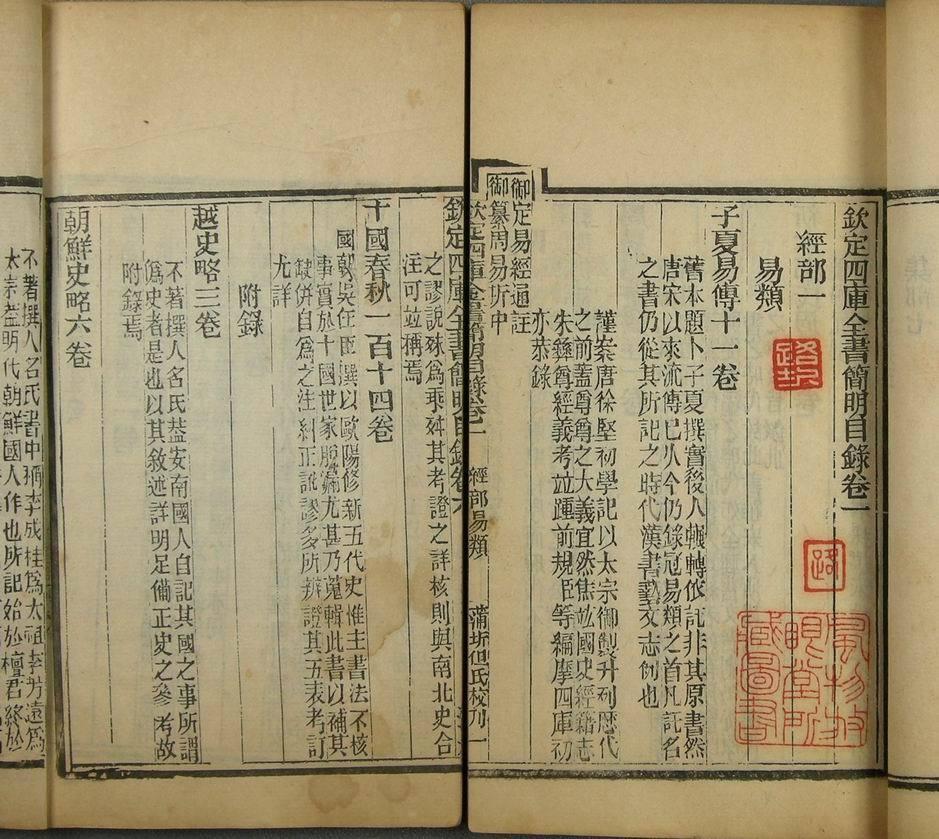 欽定四庫全書簡明目錄卷一
經部一
易類
子夏易傳十一卷
舊本題卜子夏撰實後人輾轉依託非其原書然
唐宋以來流傳已久今仍錄冠易類之首凡託名
之書仍從其所託之時代漢書藝文志例也
謹案唐徐堅初學記以太宗御製升列歷代
之前蓋尊尊之大義宜然焦竑國史經籍志
朱彝尊經義考竝踵前規臣等編摩四庫初
亦恭錄
御定易經通註
御纂周易折中
欽定四庫全書簡明目錄卷一 經部易類 蒲圻但氏校刊 一
欽定四庫全書簡明目錄卷六
之謬說殊為乖舛其考證之詳核則與南北史合
注可竝稱焉
十國春秋一百十四卷
國朝吳任臣撰以歐陽修新五代史惟主書法不核
事實於十國世家脫漏尤甚乃蒐輯此書以補其
缺併自為之注糾正訛謬多所辨證其五表考訂
尤詳
附錄
越史略三卷
不著撰人名氏蓋安南國人自記其國之事所謂
偽史者是也以其敘述詳明足備正史之參考故
附錄焉
朝鮮史略六卷
不著撰人名氏書中稱李成桂為太祖李芳遠為
太宗蓋明代朝鮮國人作也所記始於檀君終於